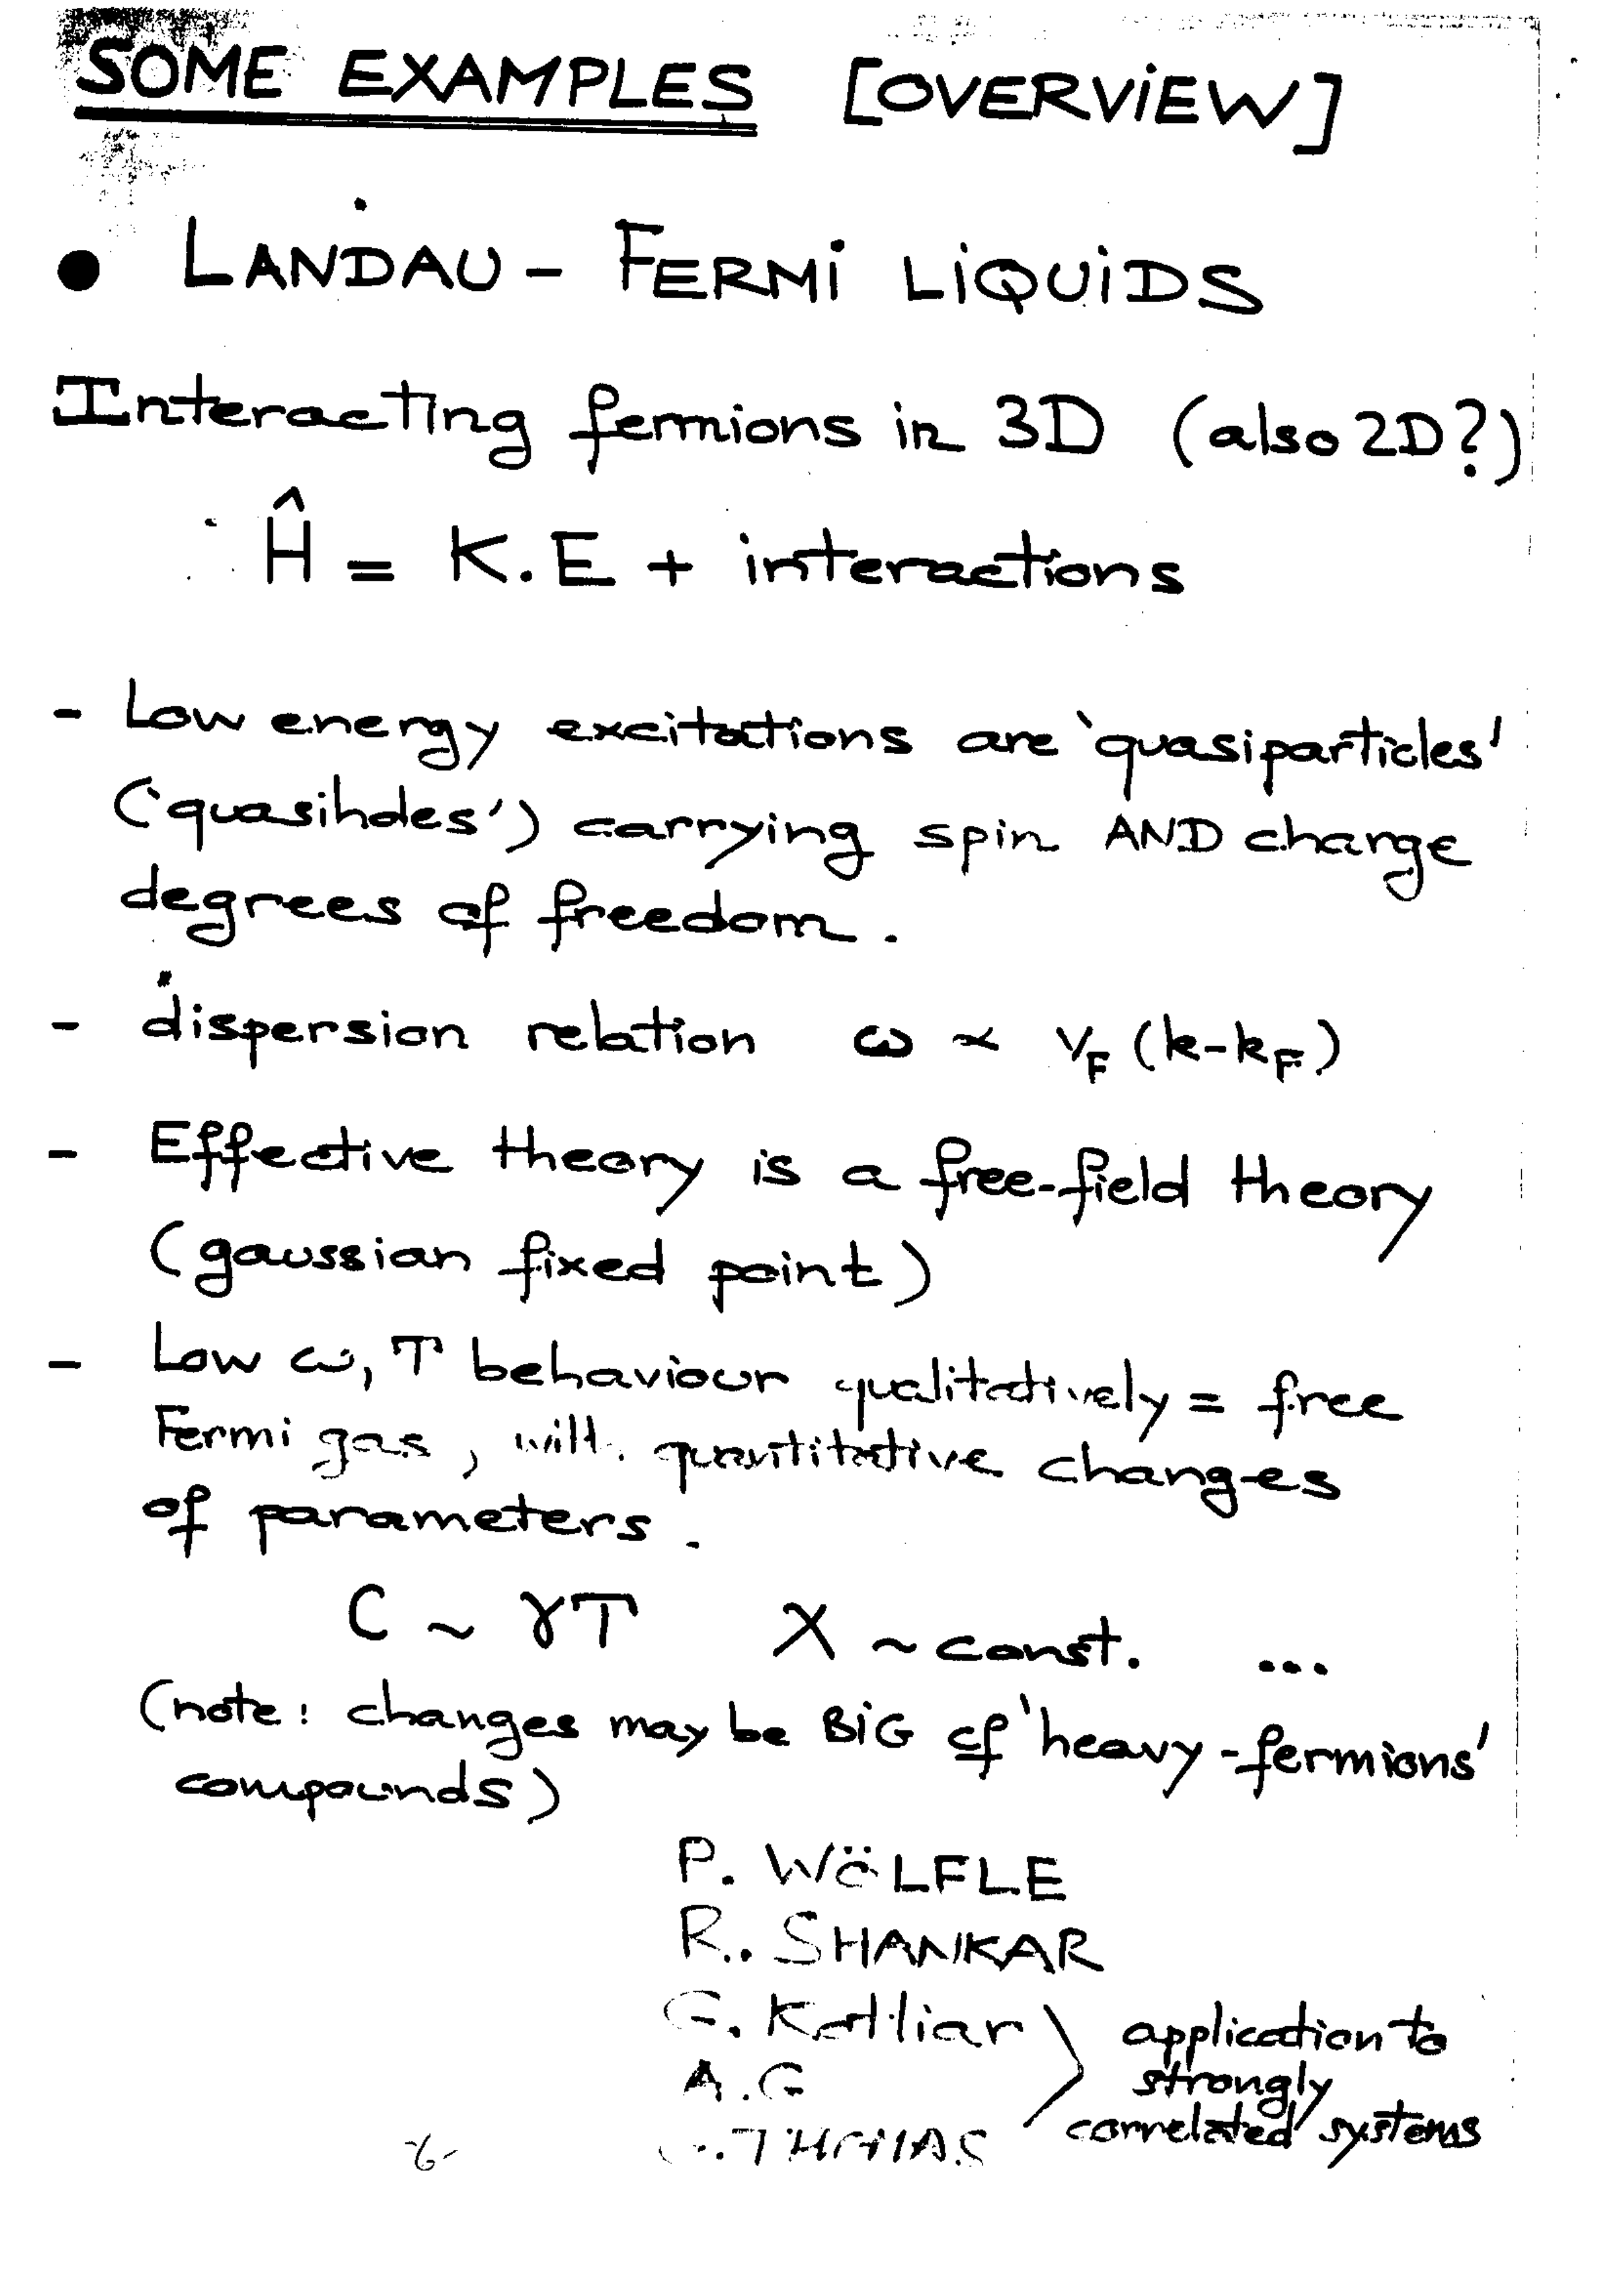 SOME EXAMPLES [OVERVIEW]
● LANDAU - FERMI LIQUIDS
Interacting fermions in 3D (also 2D?)
Ĥ = K.E + interactions
- Low energy excitations are 'quasiparticles'
('quasiholes') carrying spin AND charge
degrees of freedom.
- dispersion relation ω ∝ v_F (k-k_F)
- Effective theory is a free-field theory
(gaussian fixed point)
- Low ω, T behaviour qualitatively = free
Fermi gas, with quantitative changes
of parameters.
C ~ γT χ ~ const. ...
(note: changes may be BIG cf 'heavy-fermions'
compounds)
P. WÖLFLE
R. SHANKAR
G. Kotliar
A.G
application to
strongly
correlated systems
-6-